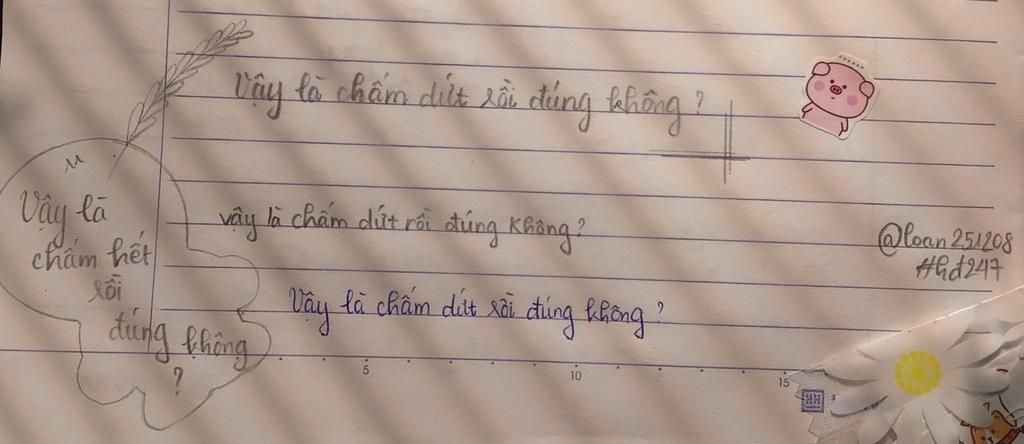 Vậy là chấm dứt rồi đúng không?
Vậy là
chấm hết
rồi
đúng không
?
vậy là chấm dứt rồi đúng không?
@loan251208
#hd247
Vậy là chấm dứt rồi đúng không?
5 10 15